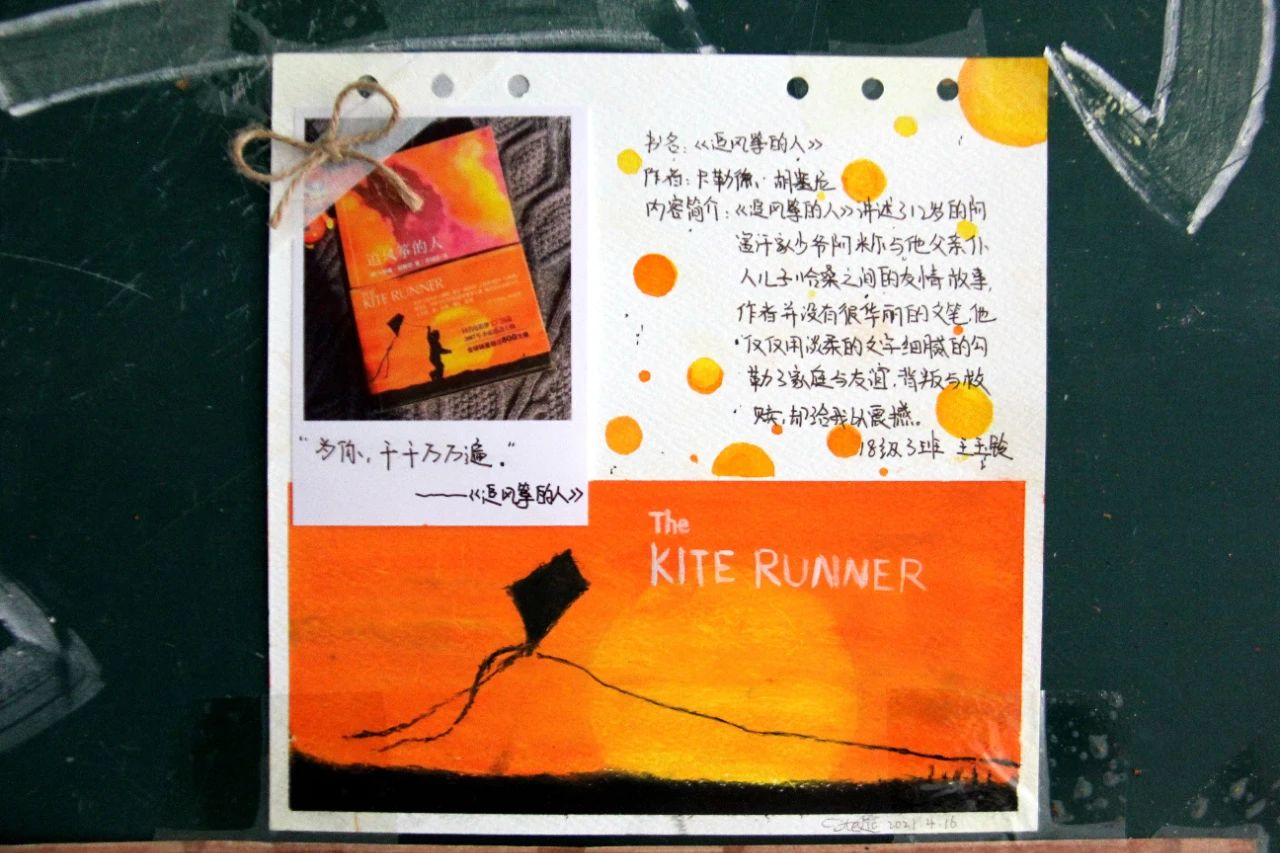 追风筝的人
THE
KITE RUNNER
"为你,千千万万遍."
——《追风筝的人》
书名:《追风筝的人》
作者:卡勒德·胡塞尼
内容简介:《追风筝的人》讲述了12岁的阿
富汗家少爷阿米尔与他父亲仆
人儿子哈桑之间的友情故事,
作者并没有很华丽的文笔,他
仅仅用淡柔的文字细腻的勾
勒了家庭与友谊,背叛与救
赎,却给我以震撼。
18级3班 王玉龄
The
KITE RUNNER
2021.4.16